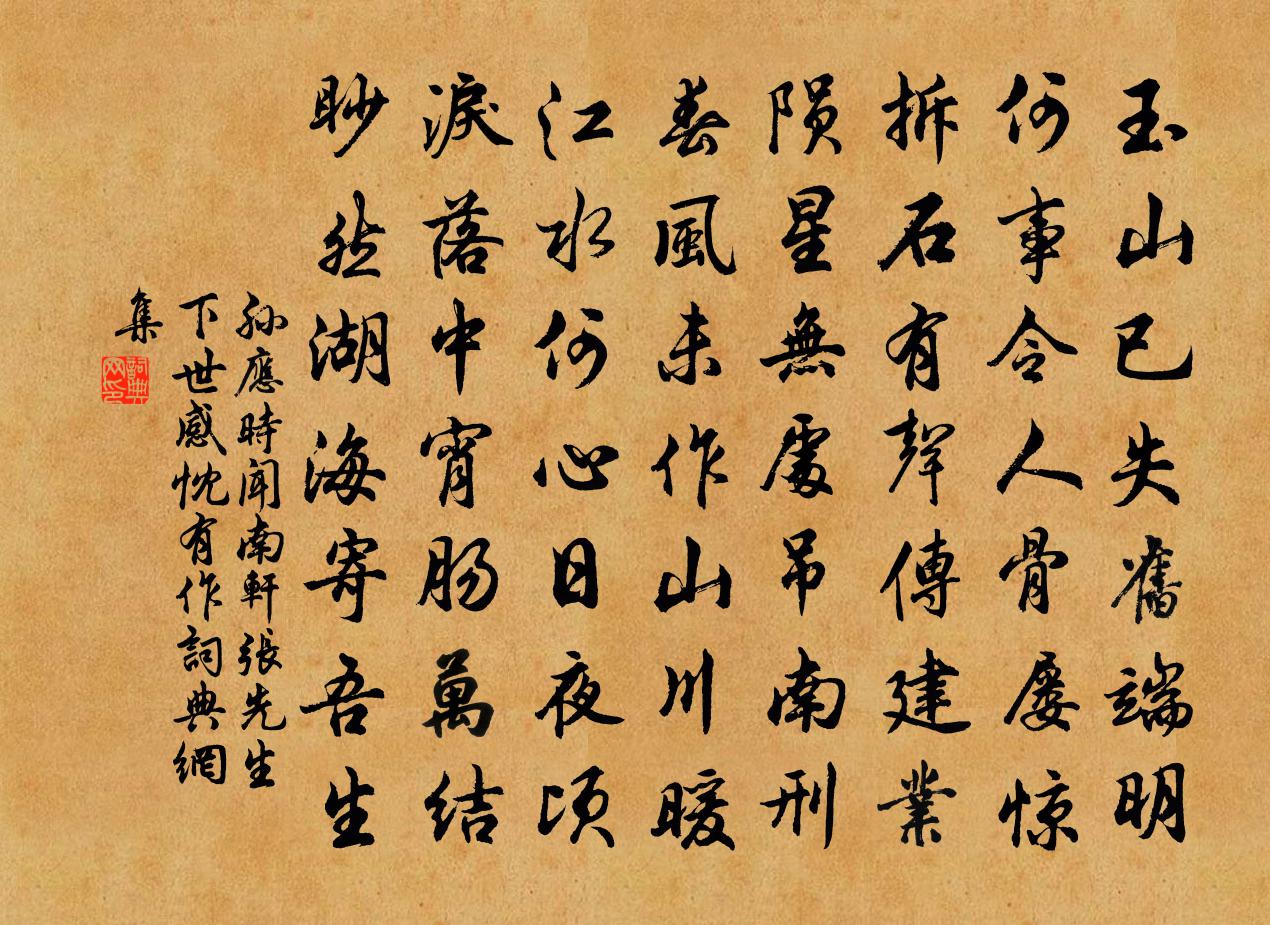 玉山已失舊端明
何事令人骨屢惊
拆石有聲傳建業
陨星無處吊南刑
春風未作山川暖
江水何心日夜顷
淚落中宵肠萬结
眇然湖海寄吾生
孙應時闻南軒張先生
下世感忱有作詞典網
集
詞典
网印